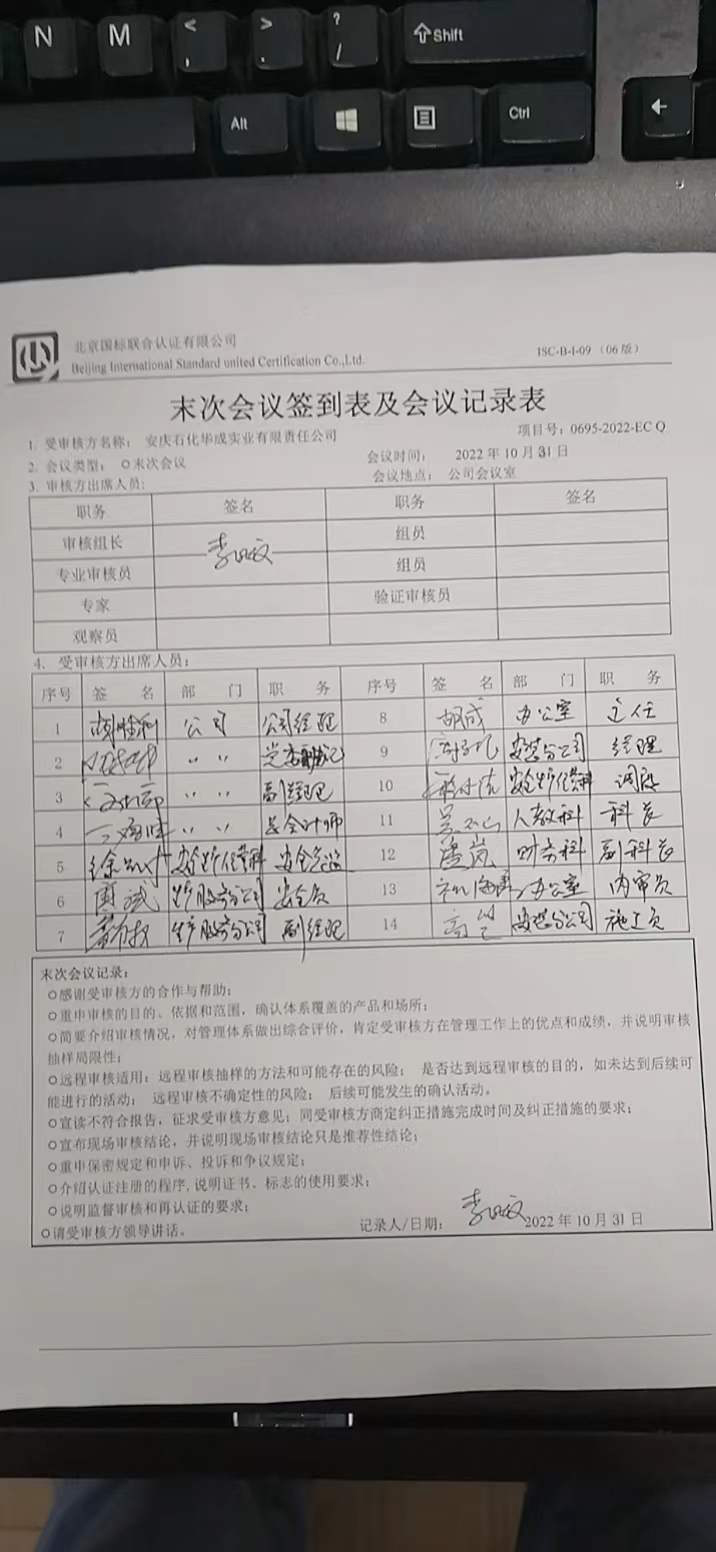 N M < , > . ? / Shift
Alt Ctrl
北京国标联合认证有限公司
Beijing International Standard united Certification Co.,Ltd.
ISC-B-I-09 (06版)
末次会议签到表及会议记录表
项目号：0695-2022-EC Q
1. 受审核方名称： 安庆石化华成实业有限责任公司
2. 会议类型： ○末次会议 会议时间： 2022 年 10 月 31 日
会议地点： 公司会议室
3. 审核方出席人员:
职务 签名 职务 签名
审核组长 组员
专业审核员 组员
专家 验证审核员
观察员
4. 受审核方出席人员：
序号 签 名 部 门 职 务 序号 签 名 部 门 职 务
1 公司 公司经理 8 胡成 办公室 主任
2 〃 〃 9 安装分公司 经理
3 〃 〃 副经理 10
4 〃 〃 总会计师 11 人教科 科长
5 12 唐岚 财务科 副科长
6 安全员 13 办公室 内审员
7 副经理 14 安装分公司 施工员
末次会议记录：
○感谢受审核方的合作与帮助；
○重申审核的目的、依据和范围，确认体系覆盖的产品和场所；
○简要介绍审核情况，对管理体系做出综合评价，肯定受审核方在管理工作上的优点和成绩，并说明审核
抽样局限性；
○远程审核适用：远程审核抽样的方法和可能存在的风险； 是否达到远程审核的目的，如未达到后续可
能进行的活动； 远程审核不确定性的风险； 后续可能发生的确认活动。
○宣读不符合报告，征求受审核方意见；同受审核方商定纠正措施完成时间及纠正措施的要求；
○宣布现场审核结论，并说明现场审核结论只是推荐性结论；
○重申保密规定和申诉、投诉和争议规定；
○介绍认证注册的程序,说明证书、标志的使用要求；
○说明监督审核和再认证的要求；
○请受审核方领导讲话。 记录人/日期： 2022 年 10 月 31 日